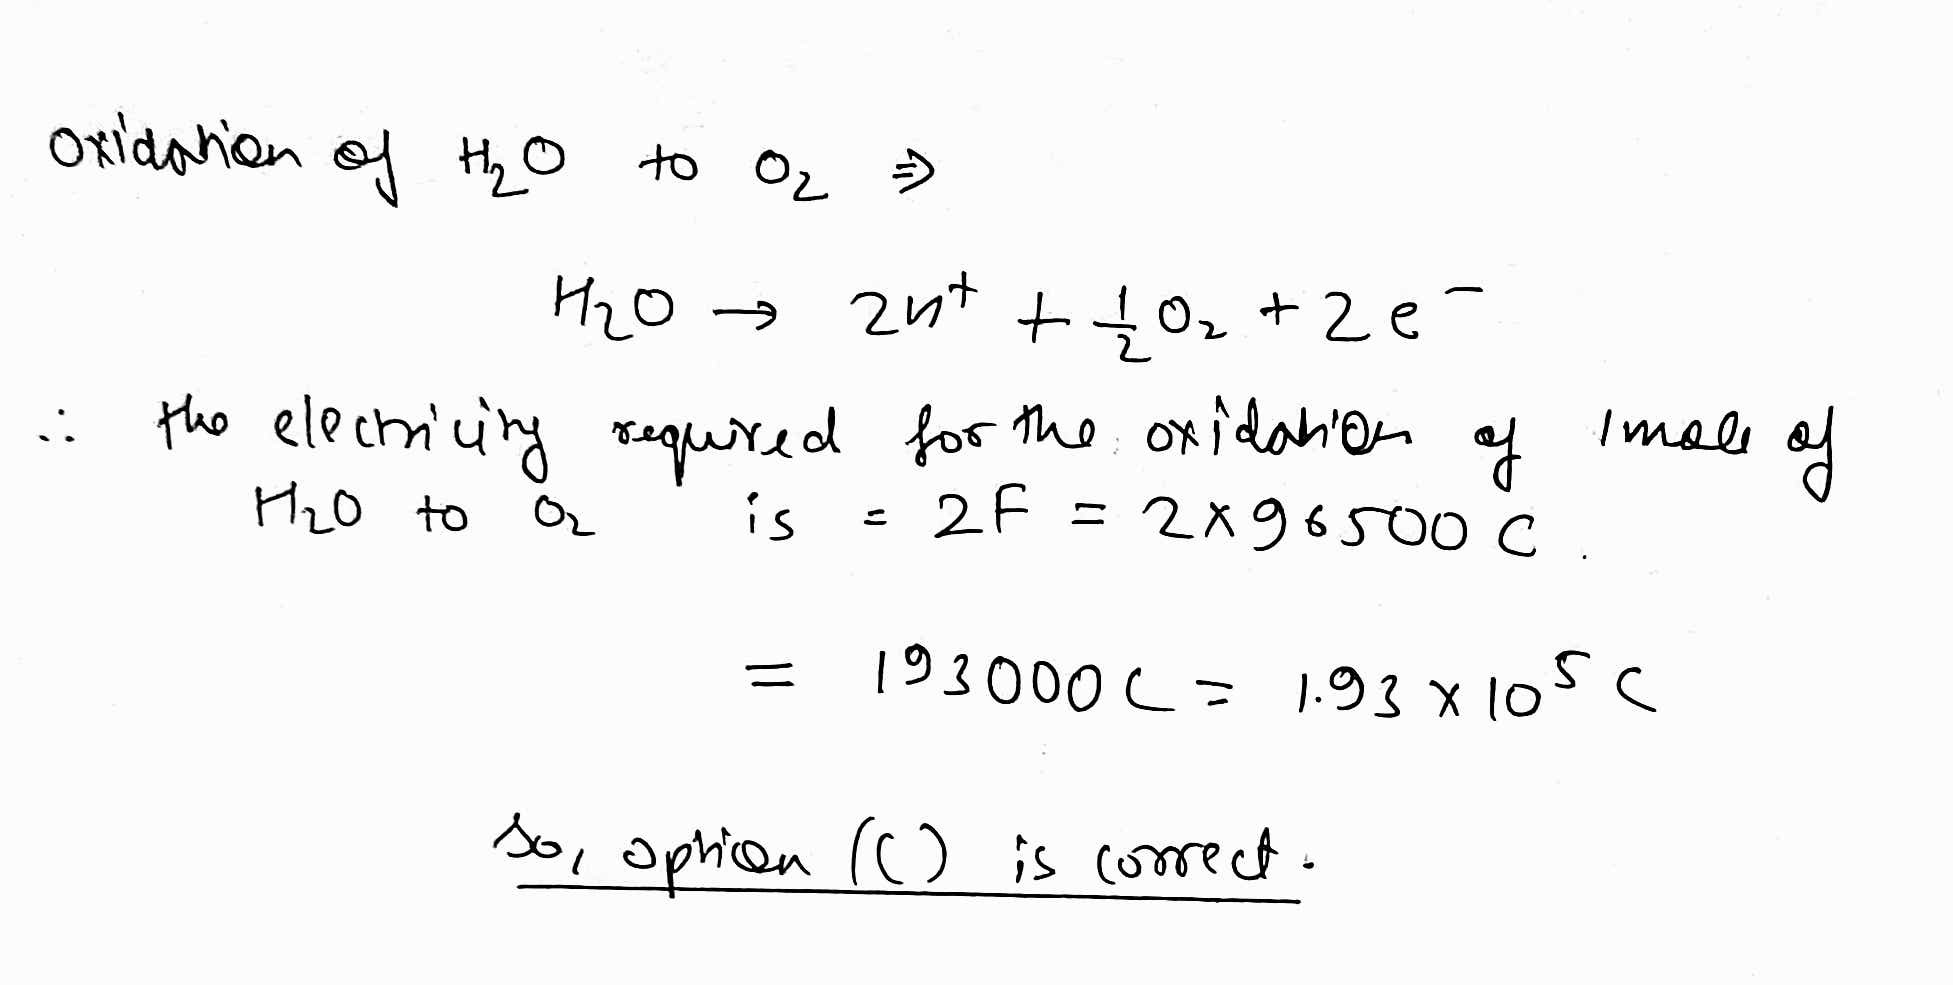 Oxidation of H₂O to O₂ ⇒
H₂O → 2H⁺ + 1/2 O₂ + 2e⁻
∴ the electricity required for the oxidation of 1 mole of
H₂O to O₂ is = 2F = 2×96500 C.
= 193000 C = 1.93 × 10⁵ C
So, option (C) is correct.